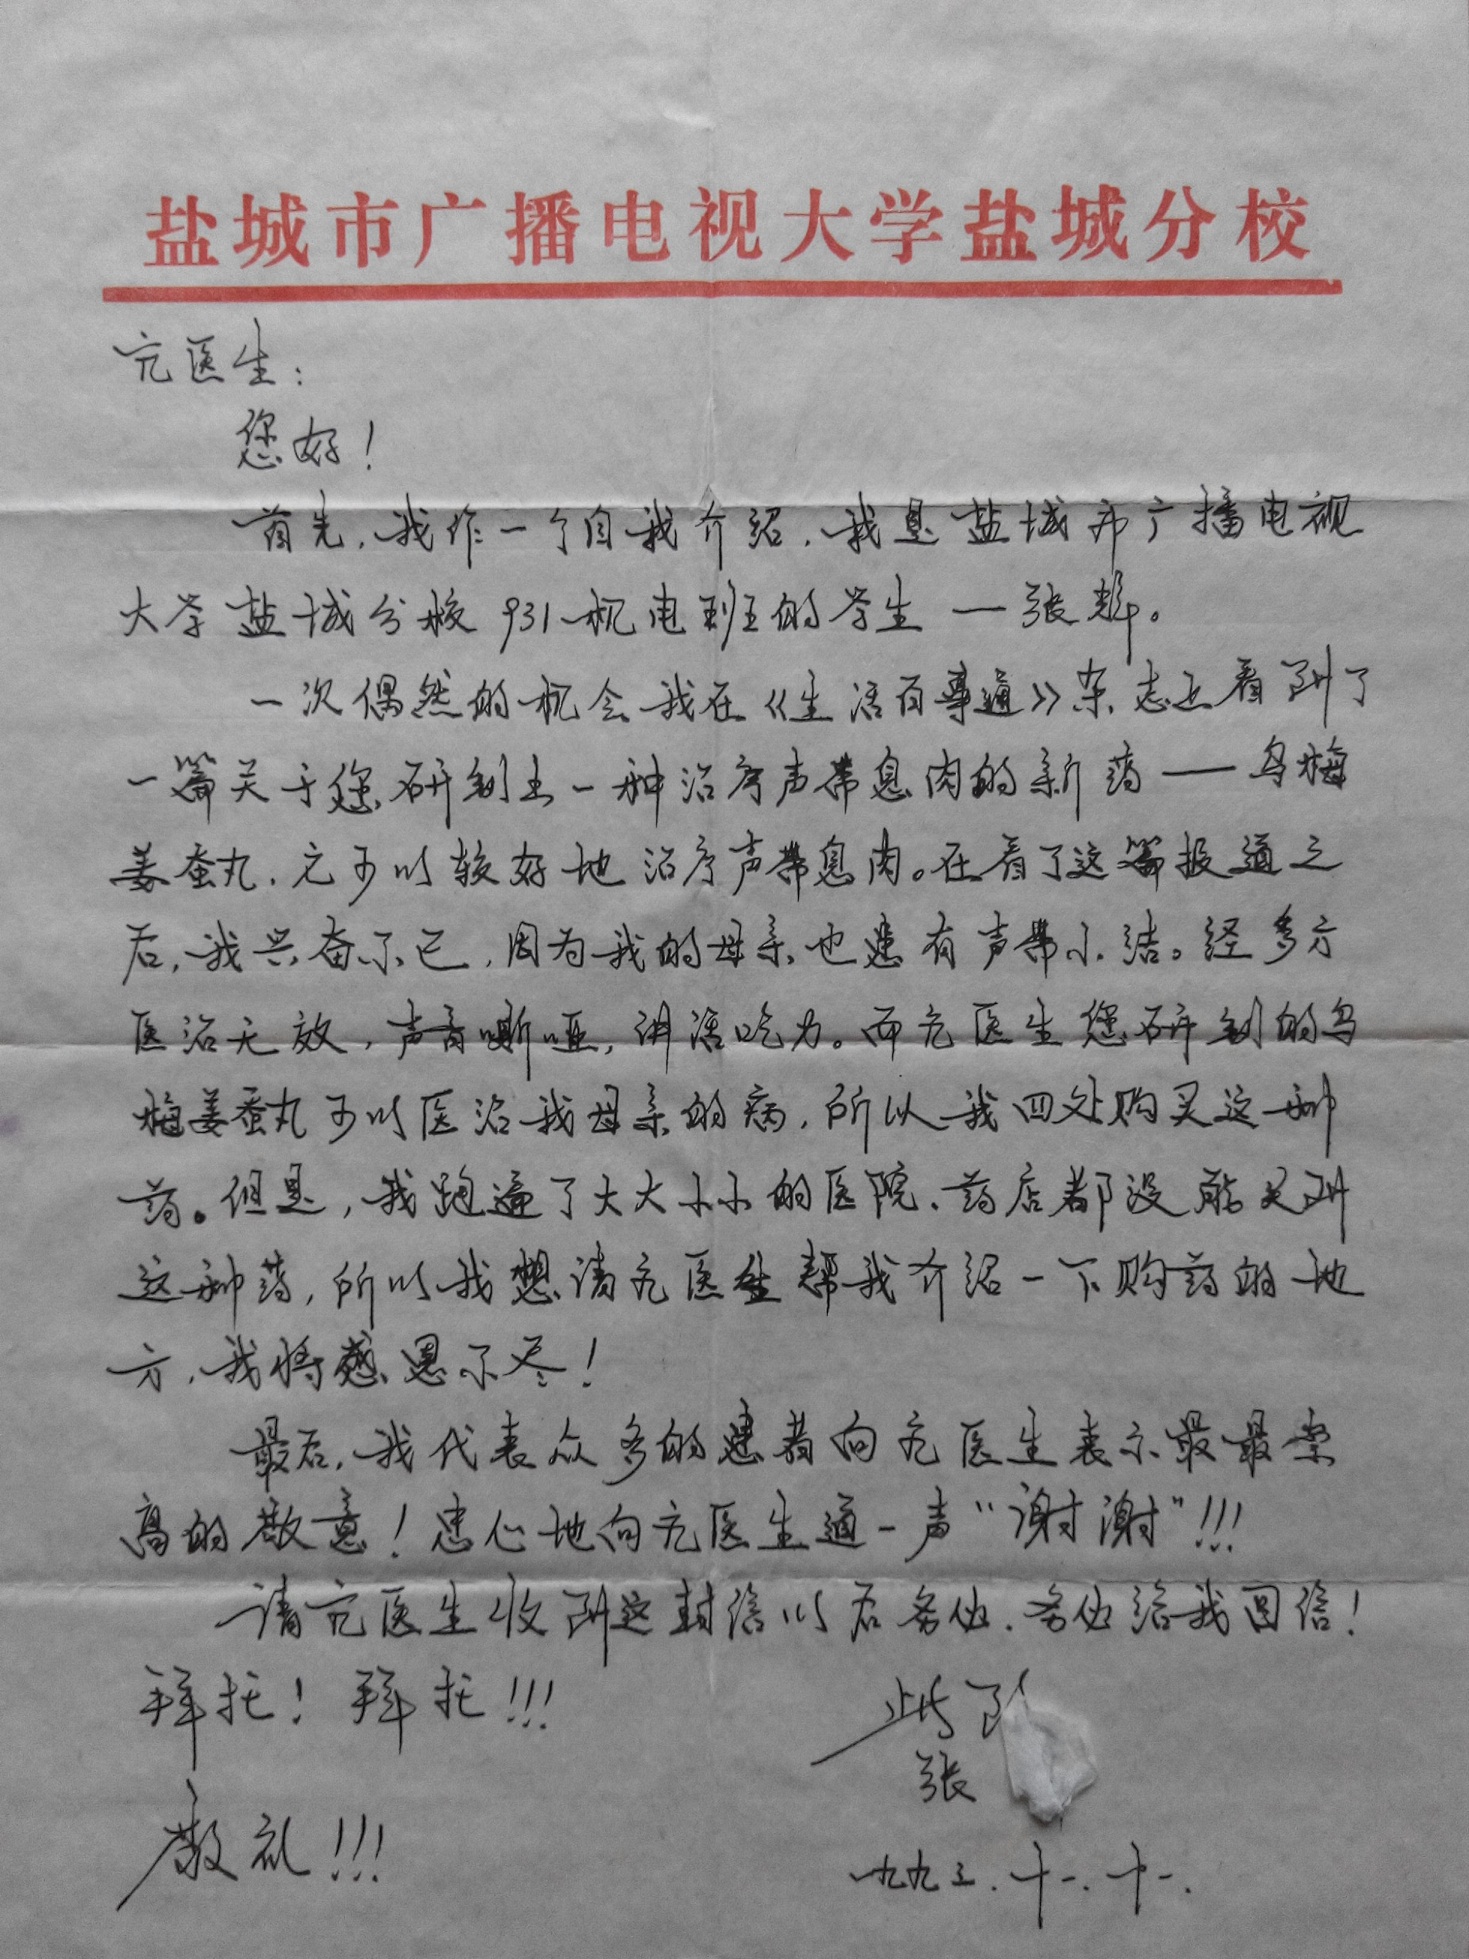 盐城市广播电视大学盐城分校
亢医生：
您好！
首先，我作一个自我介绍，我是盐城市广播电视
大学盐城分校931机电班的学生—张
一次偶然的机会我在《生活百事通》杂志上看到了
一篇关于您研制出一种治疗声带息肉的新药——乌梅
姜蚕丸，它可以较好地治疗声带息肉。在看了这篇报道之
后，我兴奋不已，因为我的母亲也患有声带小结。经多方
医治无效，声音嘶哑，讲话吃力。而亢医生您研制的乌
梅姜蚕丸可以医治我母亲的病，所以我四处购买这一种
药。但是，我跑遍了大大小小的医院、药店都没能买到
这种药，所以我想请亢医生帮我介绍一下购药的地
方，我将感恩不尽！
最后，我代表众多的患者向亢医生表示最最崇
高的敬意！忠心地向亢医生道一声“谢谢”!!!
请亢医生收到这封信以后务必、务必给我回信！
拜托！拜托!!!
此
张
敬礼!!!
一九九三.十一.十一.